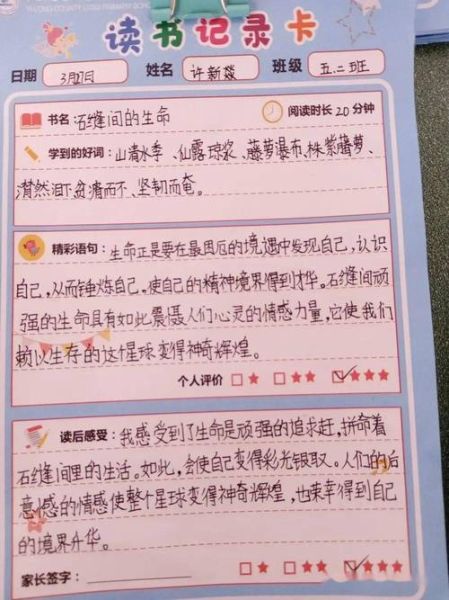 YIZONG COUNTY LONG PRIMARY SCHOOL
读书记录卡
日期 3月27日 姓名 许新燚 班级 五.二班
书名: 石缝间的生命 阅读时长 20 分钟
学到的好词: 山清水季、仙露琼浆、藤萝瀑布、株紫藤萝、
潸然泪下、贫瘠而不、坚韧而奄。
精彩语句: 生命正是要在最困厄的境遇中发现自己,认识
自己,从而锤炼自己。使自己的精神境界得到才华。石缝间顽
强的生命具有如此震慑人们心灵的情感力量,它使我们
赖以生存的这个星球变得神奇辉煌。
个人评价
读后感受: 我感受到了生命是顽强的追求赶,拼命着
石缝间里的生活。如此,会使自己变得彩光银取。人们的后
意感的情感使整个星球变得神奇辉煌,也荣幸得到自己
的境界升华。
家长签字: